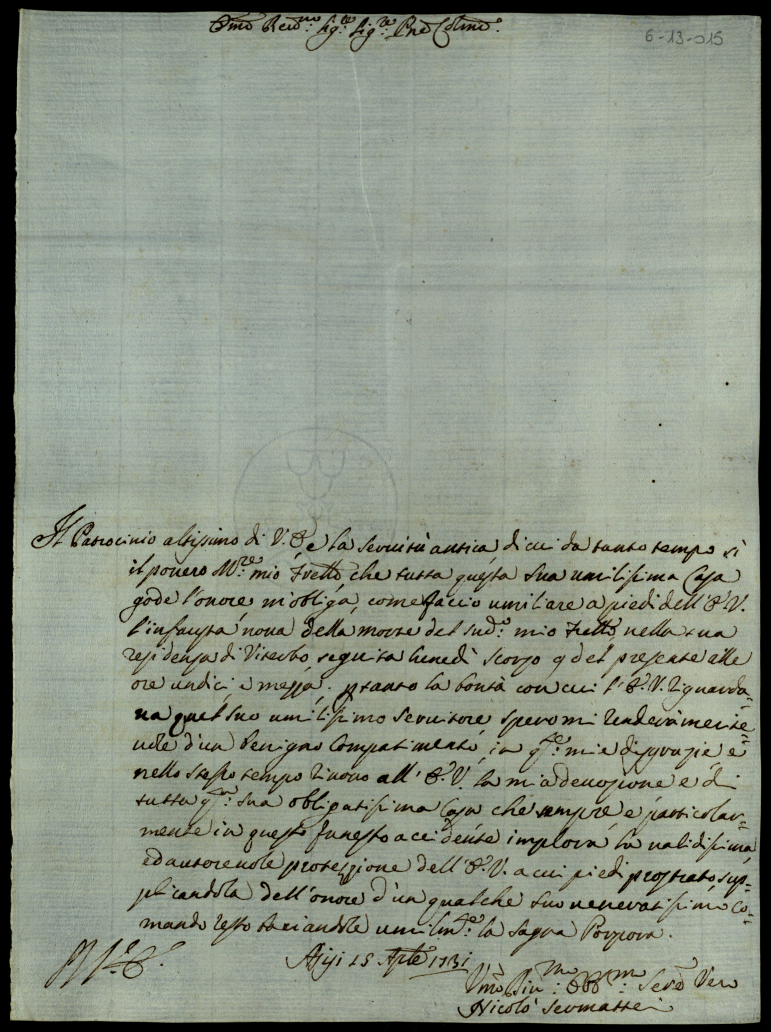 Em̃o Reũ.mo Sig.re Sig.re Pne Colmo.
6-13-015
Il Patrocinio altissimo di V. E. e la servitù antica di cui da tanto tempo sì
il povero M.re mio Fretto, che tutta questa sua umilissima Casa
gode l'onore m'obliga, come faccio umiliare a piedi dell'E. V.
l'infausta nova della morte del sud.o mio Fretto, nella sua
residenza di Viterbo seguita lunedì scorso 9 del presente alle
ore undici e mezza. ptanto la bontà con cui l'E. V. riguarda-
va quel suo umilissimo servitore spero mi renderà merite-
vole d'un benigno compatimento, in q.te mie disgrazie e
nello stesso tempo rinovo all'E. V. la mia devozione e di
tutta q.ta sua obligatissima Casa che sempre e particolar-
mente in questo funesto accidente implora la validissima,
ed autorevole protezzione dell'E. V. a cui piedi prostrato sup-
plicandola dell'onore d'un qualche suo veneratissimo co-
mando resto baciandole umilm.te la sagra Porpora.
Asisi 15 Aprle 1731
Vmo Div.mo Obb.mo Servo Vero
Nicolò Sermattei